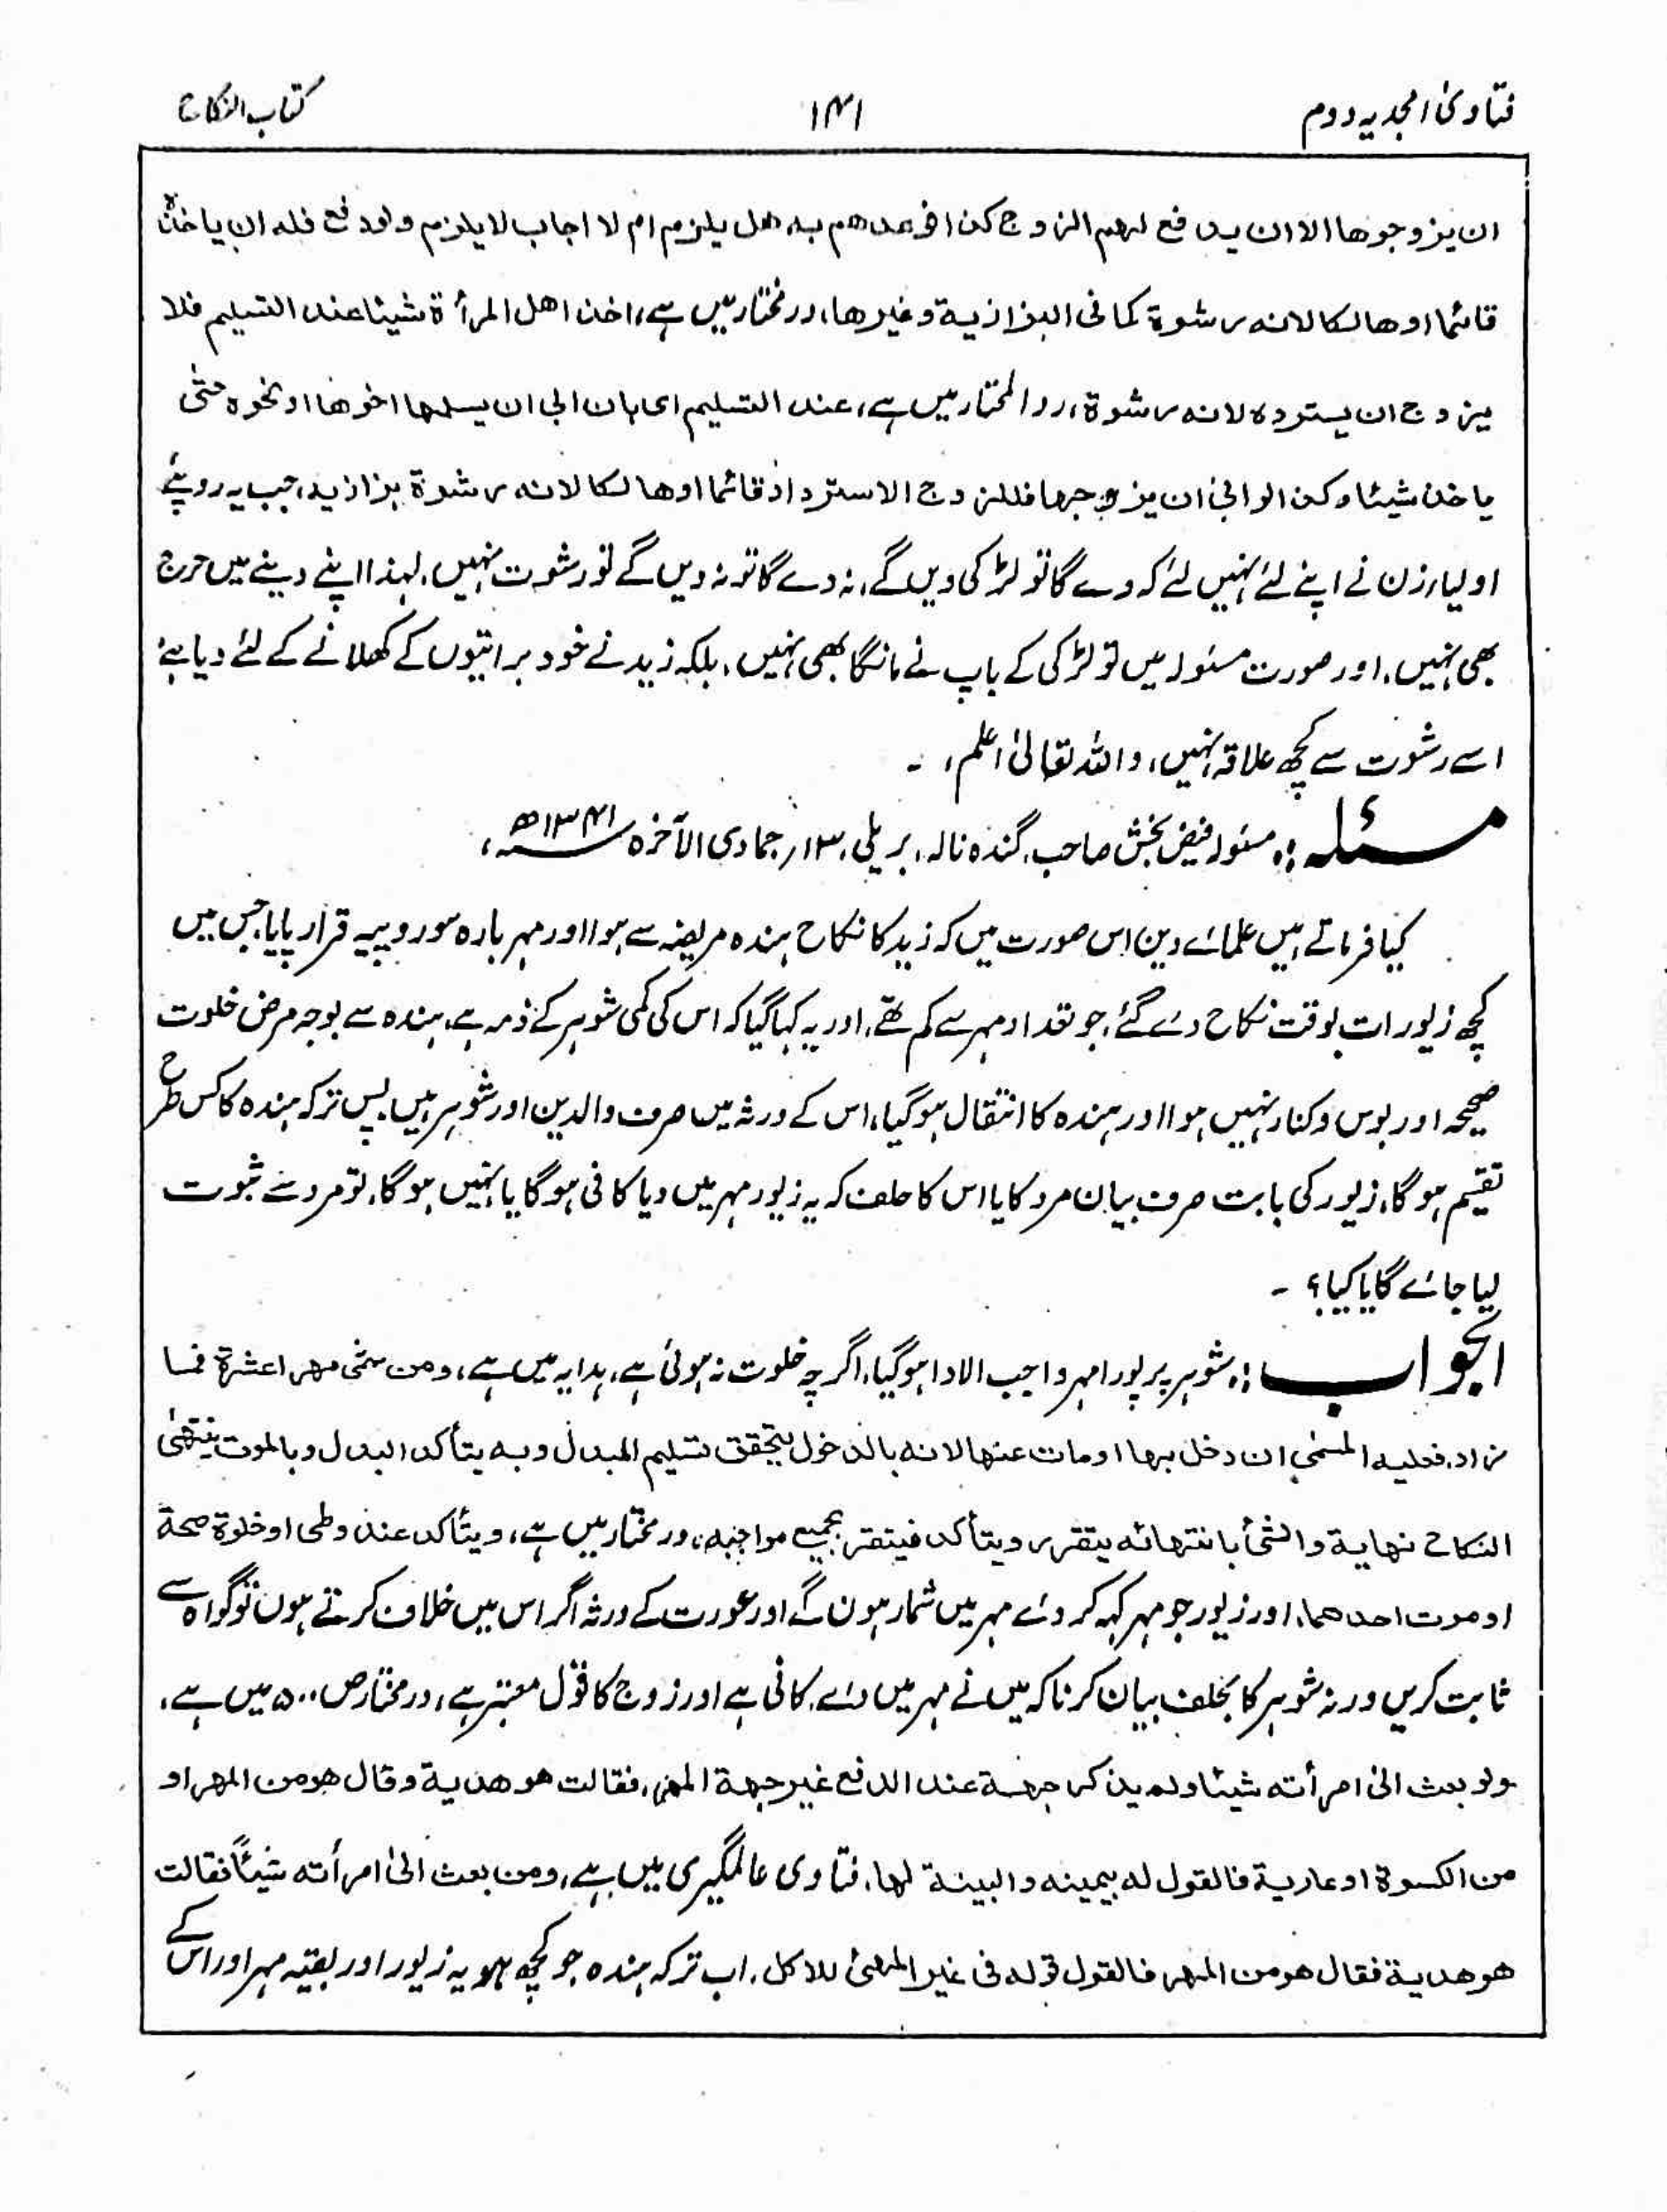 فتاویٰ امجدیہ دوم
۱۴۱
کتاب النکاح
ان یزوجوھا الا ان یدفع لھم الزوج کذا فوعدھم بہ ھل یلزم ام لا اجاب لا یلزم ولو دفع فلہ ان یاخذہ
قائما اوھالکا لانہ رشوۃ کما فی البزازیۃ وغیرھا، درمختار میں ہے، اخذ اھل المرأۃ شیئا عند التسلیم فلا
یزوج ان یستردہ لانہ رشوۃ، رد المحتار میں ہے، عند التسلیم ای بان ابی ان یسلمھا اخوھا او نحوہ حتیٰ
یاخذ شیئا وکذا لو ابیٰ ان یزوجہا فللزوج الاسترداد قائما اوھالکا لانہ رشوۃ بزازیہ، جب یہ روپئے
اولیاء زن نے اپنے لئے نہیں لئے کہ دے گا تو لڑکی دیں گے، نہ دے گا تو نہ دیں گے تو رشوت نہیں، لہذا اپنے دینے میں حرج
بھی نہیں، اور صورت مسئولہ میں تو لڑکی کے باپ نے مانگا بھی نہیں، بلکہ زید نے خود براتیوں کے کھلانے کے لئے دیا ہے،
اسے رشوت سے کچھ علاقہ نہیں، واللہ تعالیٰ اعلم، ۔
مسئلہ:۔ مسئولہ فیض بخش صاحب، گندہ نالہ، بریلی، ۱۳؍ جمادی الآخرہ سنہ ۱۳۴۱ھ،
کیا فرماتے ہیں علمائے دین اس صورت میں کہ زید کا نکاح ہندہ مریضہ سے ہوا اور مہر بارہ سو روپیہ قرار پایا جس میں
کچھ زیورات بوقت نکاح دئے گئے، جو تعداد مہر سے کم تھے، اور یہ کہا گیا کہ اس کی کمی شوہر کے ذمہ ہے، ہندہ سے بوجہ مرض خلوت
صحیحہ اور بوس وکنار نہیں ہوا اور ہندہ کا انتقال ہوگیا، اس کے ورثہ میں صرف والدین اور شوہر ہیں پس ترکہ ہندہ کا کس طرح
تقسیم ہوگا، زیور کی بابت صرف بیان مرد کا یا اس کا حلف کہ یہ زیور مہر میں دیا کافی ہوگا یا نہیں ہوگا، تو مرد سے ثبوت
لیا جائے گا یا کیا؟ ۔
الجواب:۔ شوہر پر پورا مہر واجب الادا ہوگیا، اگرچہ خلوت نہ ہوئی ہے، ہدایہ میں ہے، ومن سمّٰی مھرا عشرۃ فما
زاد، فعلیہ المسمّٰی ان دخل بہا او مات عنھا لانہ بالدخول یتحقق تسلیم المبدل وبہ یتأکد البدل وبالموت ینتھیٰ
النکاح نھایۃ والشئ بانتھائہ یتقرر ویتأکد فیتقرر بجمیع مواجبہ، درمختار میں ہے، ویتأکد عند وطی او خلوۃ صحۃ
او موت احدھما، اور زیور جو مہر کہہ کر دئے مہر میں شمار ہوں گے اور عورت کے ورثہ اگر اس میں خلاف کرتے ہوں تو گواہ سے
ثابت کریں ورنہ شوہر کا بحلف بیان کرنا کہ میں نے مہر میں دئے، کافی ہے اور زوج کا قول معتبر ہے، درمختار ص ۵۰۰ میں ہے،
ولو بعث الیٰ امرأتہ شیئا ولم یذکر جھۃ عند الدفع غیر جھۃ المھر، فقالت ھو ھدیۃ وقال ھو من المھر او
من الکسوۃ او عاریۃ فالقول لہ بیمینہ والبینۃ لھا، فتاوی عالمگیری میں ہے، ومن بعث الیٰ امرأتہ شیئاً فقالت
ھو ھدیۃ فقال ھو من المھر فالقول قولہ فی غیر المھیٔ للاکل، اب ترکہ ہندہ جو کچھ ہو یہ زیور اور بقیہ مہر اور اس کے